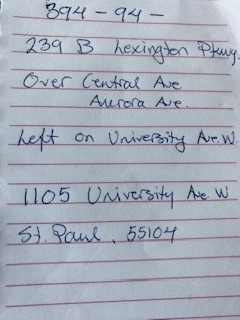 394 - 94 -
239 B Lexington Pkwy.
Over Central Ave
Aurora Ave.
Left on University Ave. W.
1105 University Ave. W
St. Paul, 55104